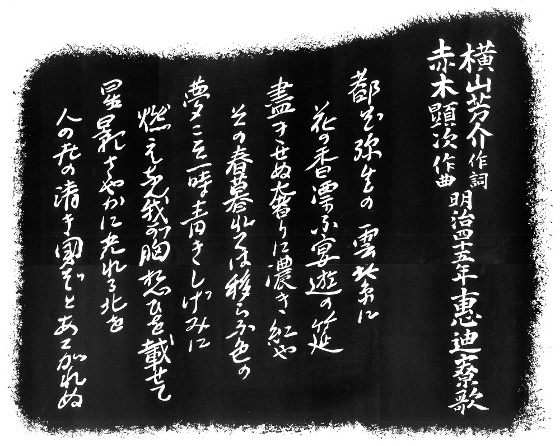 横山芳介作詞
赤木顕次作曲
明治四十五年恵迪寮歌
都ぞ弥生の 雲紫に
花の香漂ふ宴遊の筵
盡きせぬ奢りに濃き紅や
その春暮れては移らふ色の
夢こそ一時青きしげみに
燃えなん我が胸想ひを載せて
星影さやかに光れる北を
人の世の清き國ぞとあこがれぬ